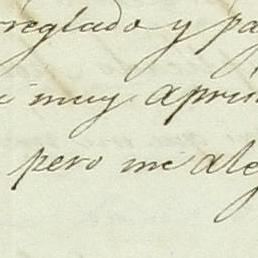 rreglado y pa
muy apris
pero me ale